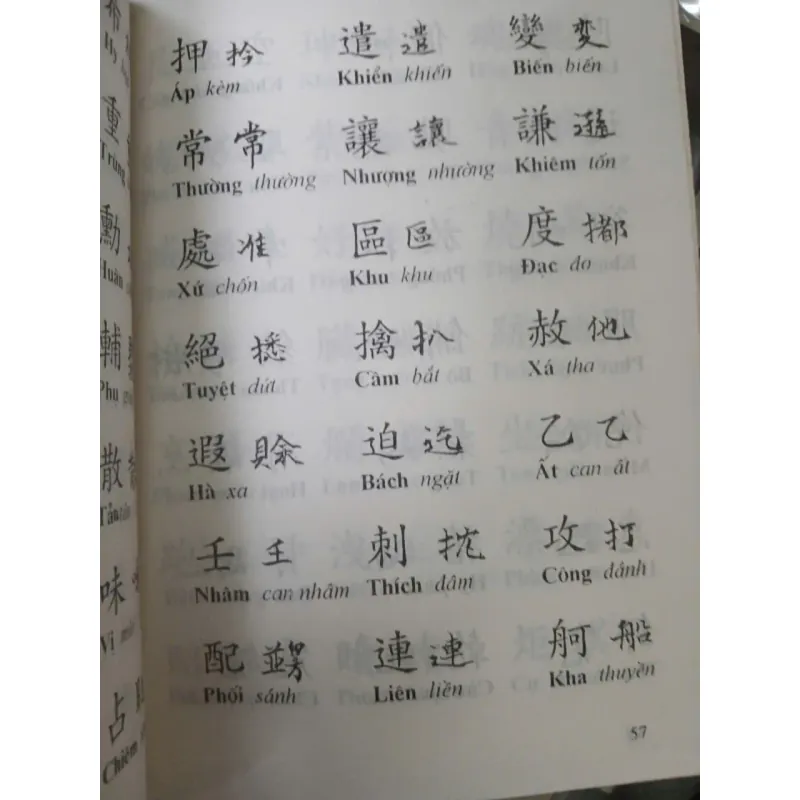 押 扲 遣 遣 變 変
Áp kèm Khiển khiến Biến biến
常 常 讓 讓 謙 遜
Thường thường Nhượng nhường Khiêm tốn
處 准 區 區 度
Xứ chốn Khu khu Đạc đo
絕 擒 扒 赦 他
Tuyệt dứt Cầm bắt Xá tha
遐 賒 迫 乙 乙
Hà xa Bách ngặt Ất can ất
壬 壬 刺 攻 打
Nhàm can nhâm Thích đâm Công đánh
配 連 連 舸 船
Phối sánh Liên liền Kha thuyền
57
重
Trùng
勳
Huân
輔
Phụ
散
Tản
味
Vị
占
Chiêm